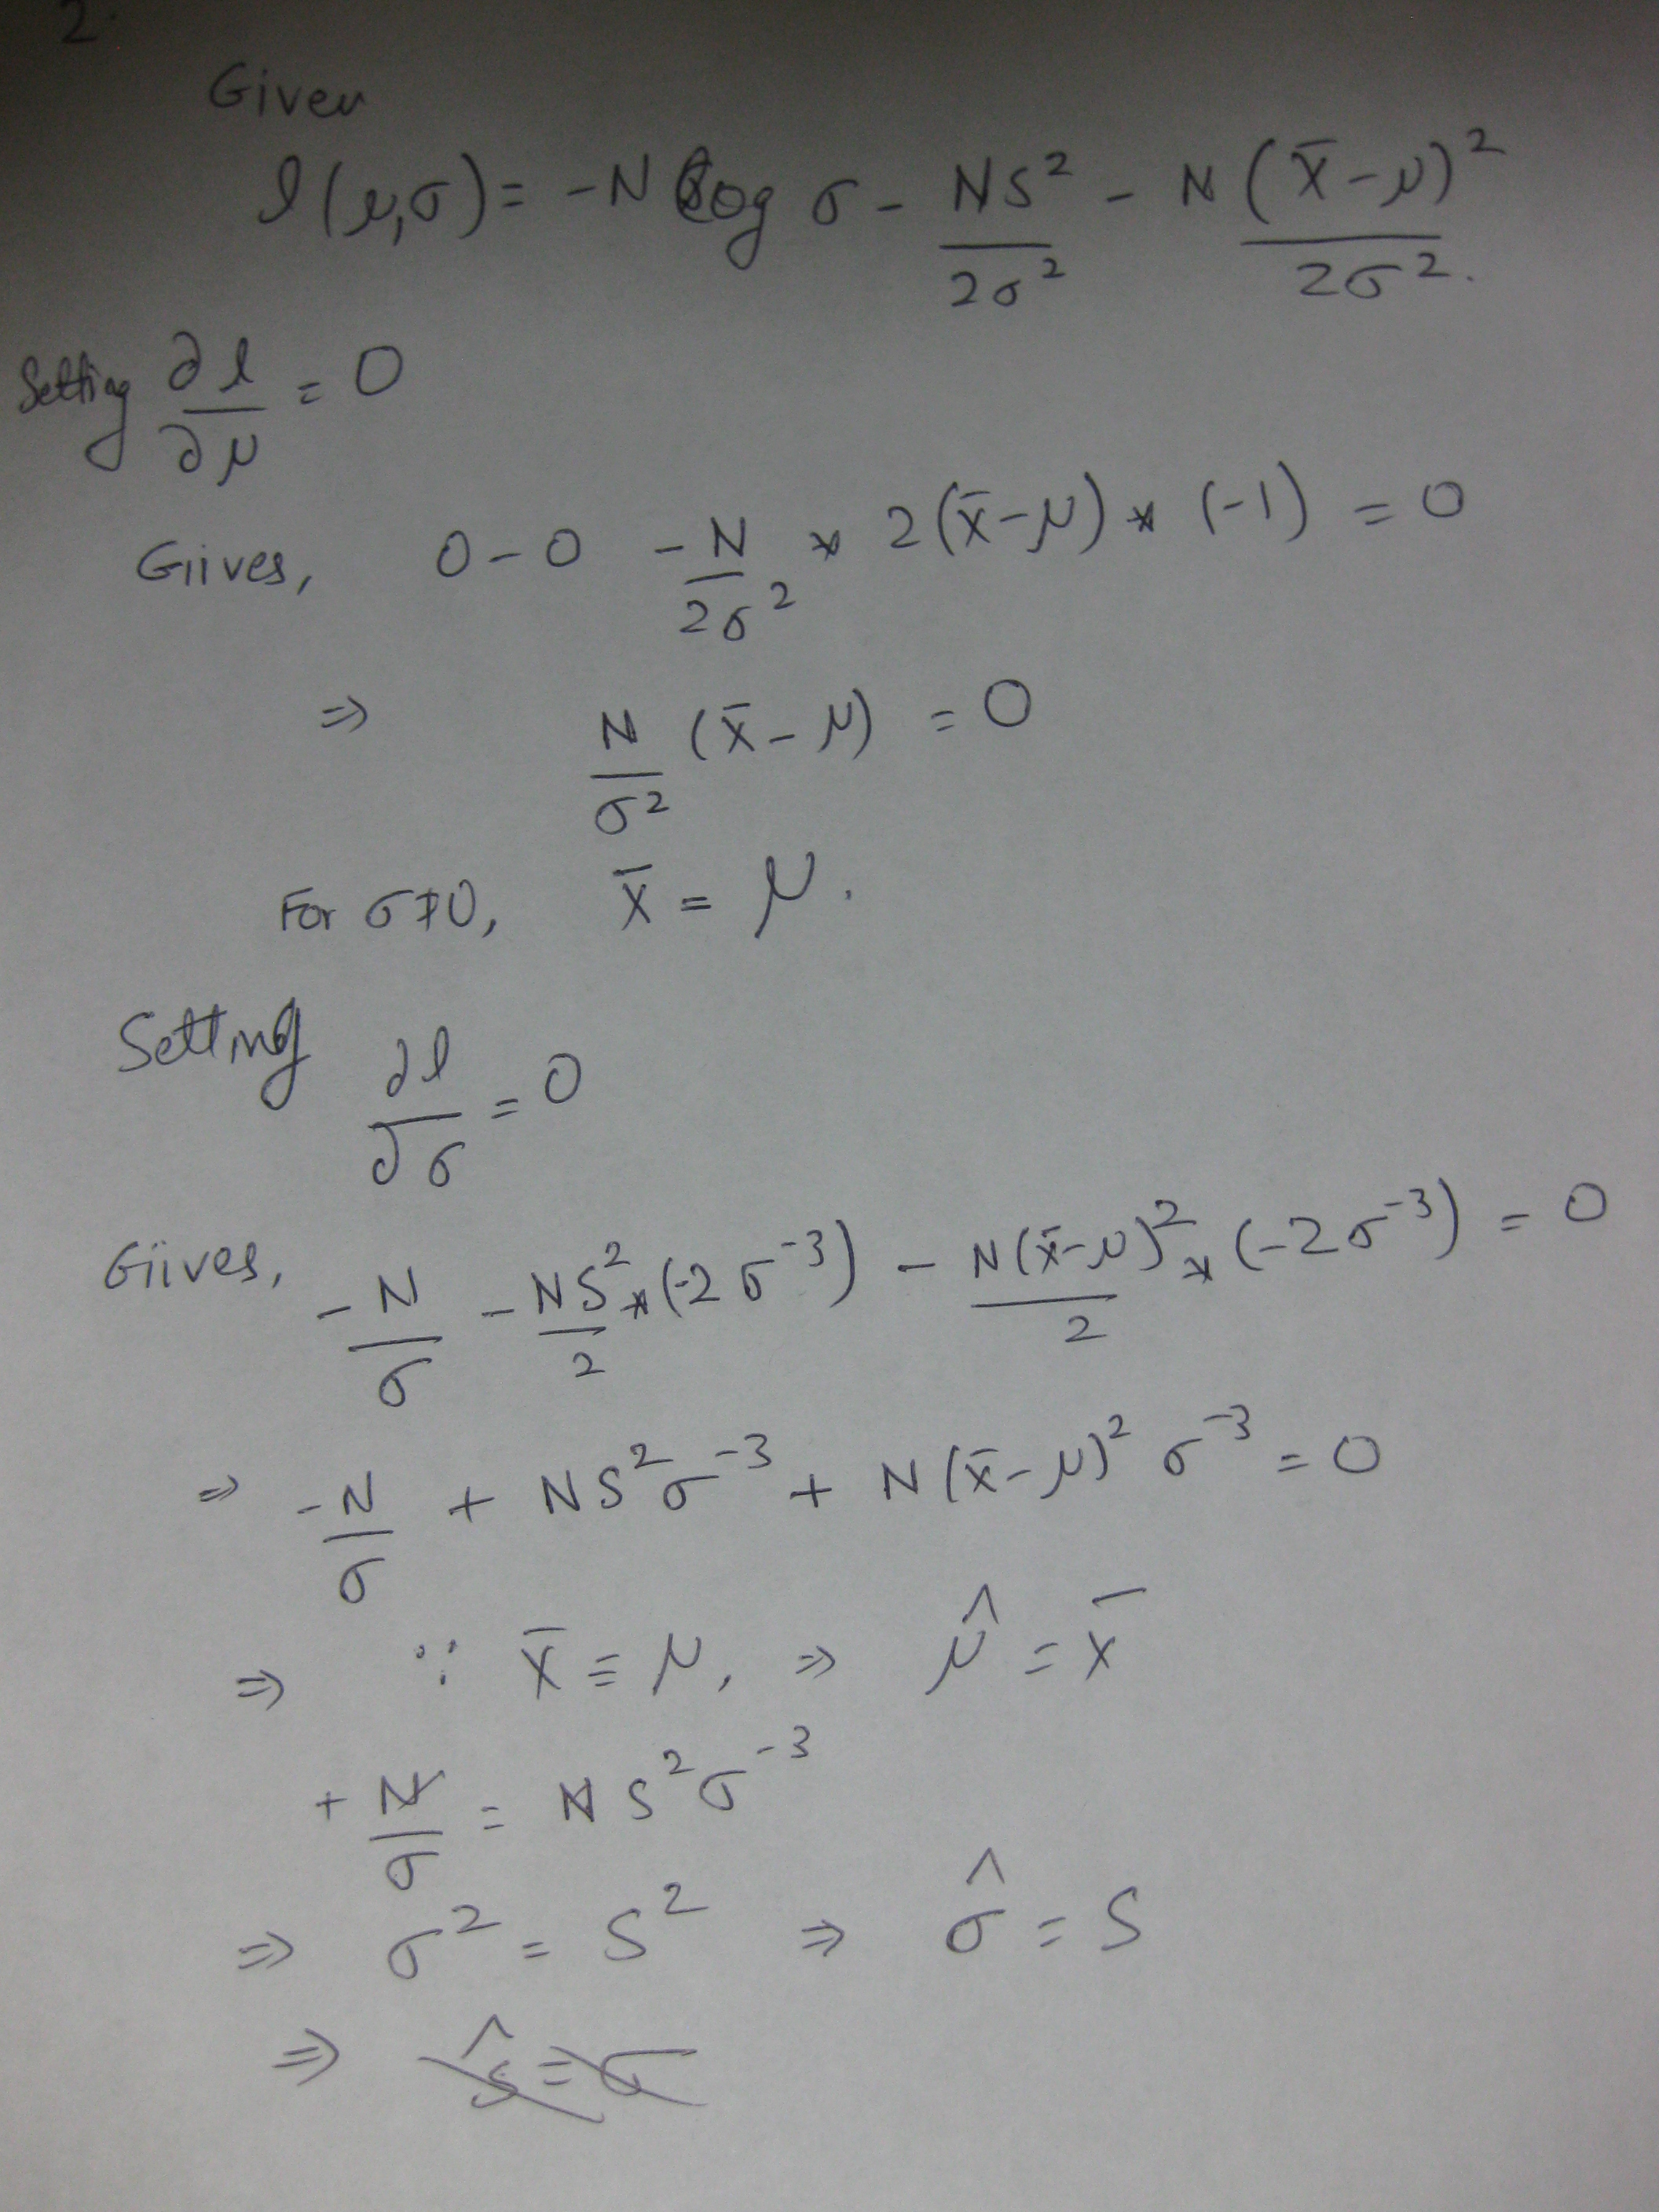 2.
Given
l(μ,σ) = -N log σ - NS²/2σ² - N(x̄-μ)²/2σ².
Setting ∂l/∂μ = 0
Gives, 0-0 -N/2σ² * 2(x̄-μ) * (-1) = 0
⇒ N/σ² (x̄-μ) = 0
For σ≠0, x̄ = μ.
Setting ∂l/∂σ = 0
Gives, -N/σ - NS²/2 * (-2σ⁻³) - N(x̄-μ)²/2 * (-2σ⁻³) = 0
⇒ -N/σ + NS²σ⁻³ + N(x̄-μ)² σ⁻³ = 0
⇒ ∵ x̄ = μ, ⇒ μ̂ = x̄
+N/σ = NS²σ⁻³
⇒ σ² = S² ⇒ σ̂ = S
⇒ ŝ = σ